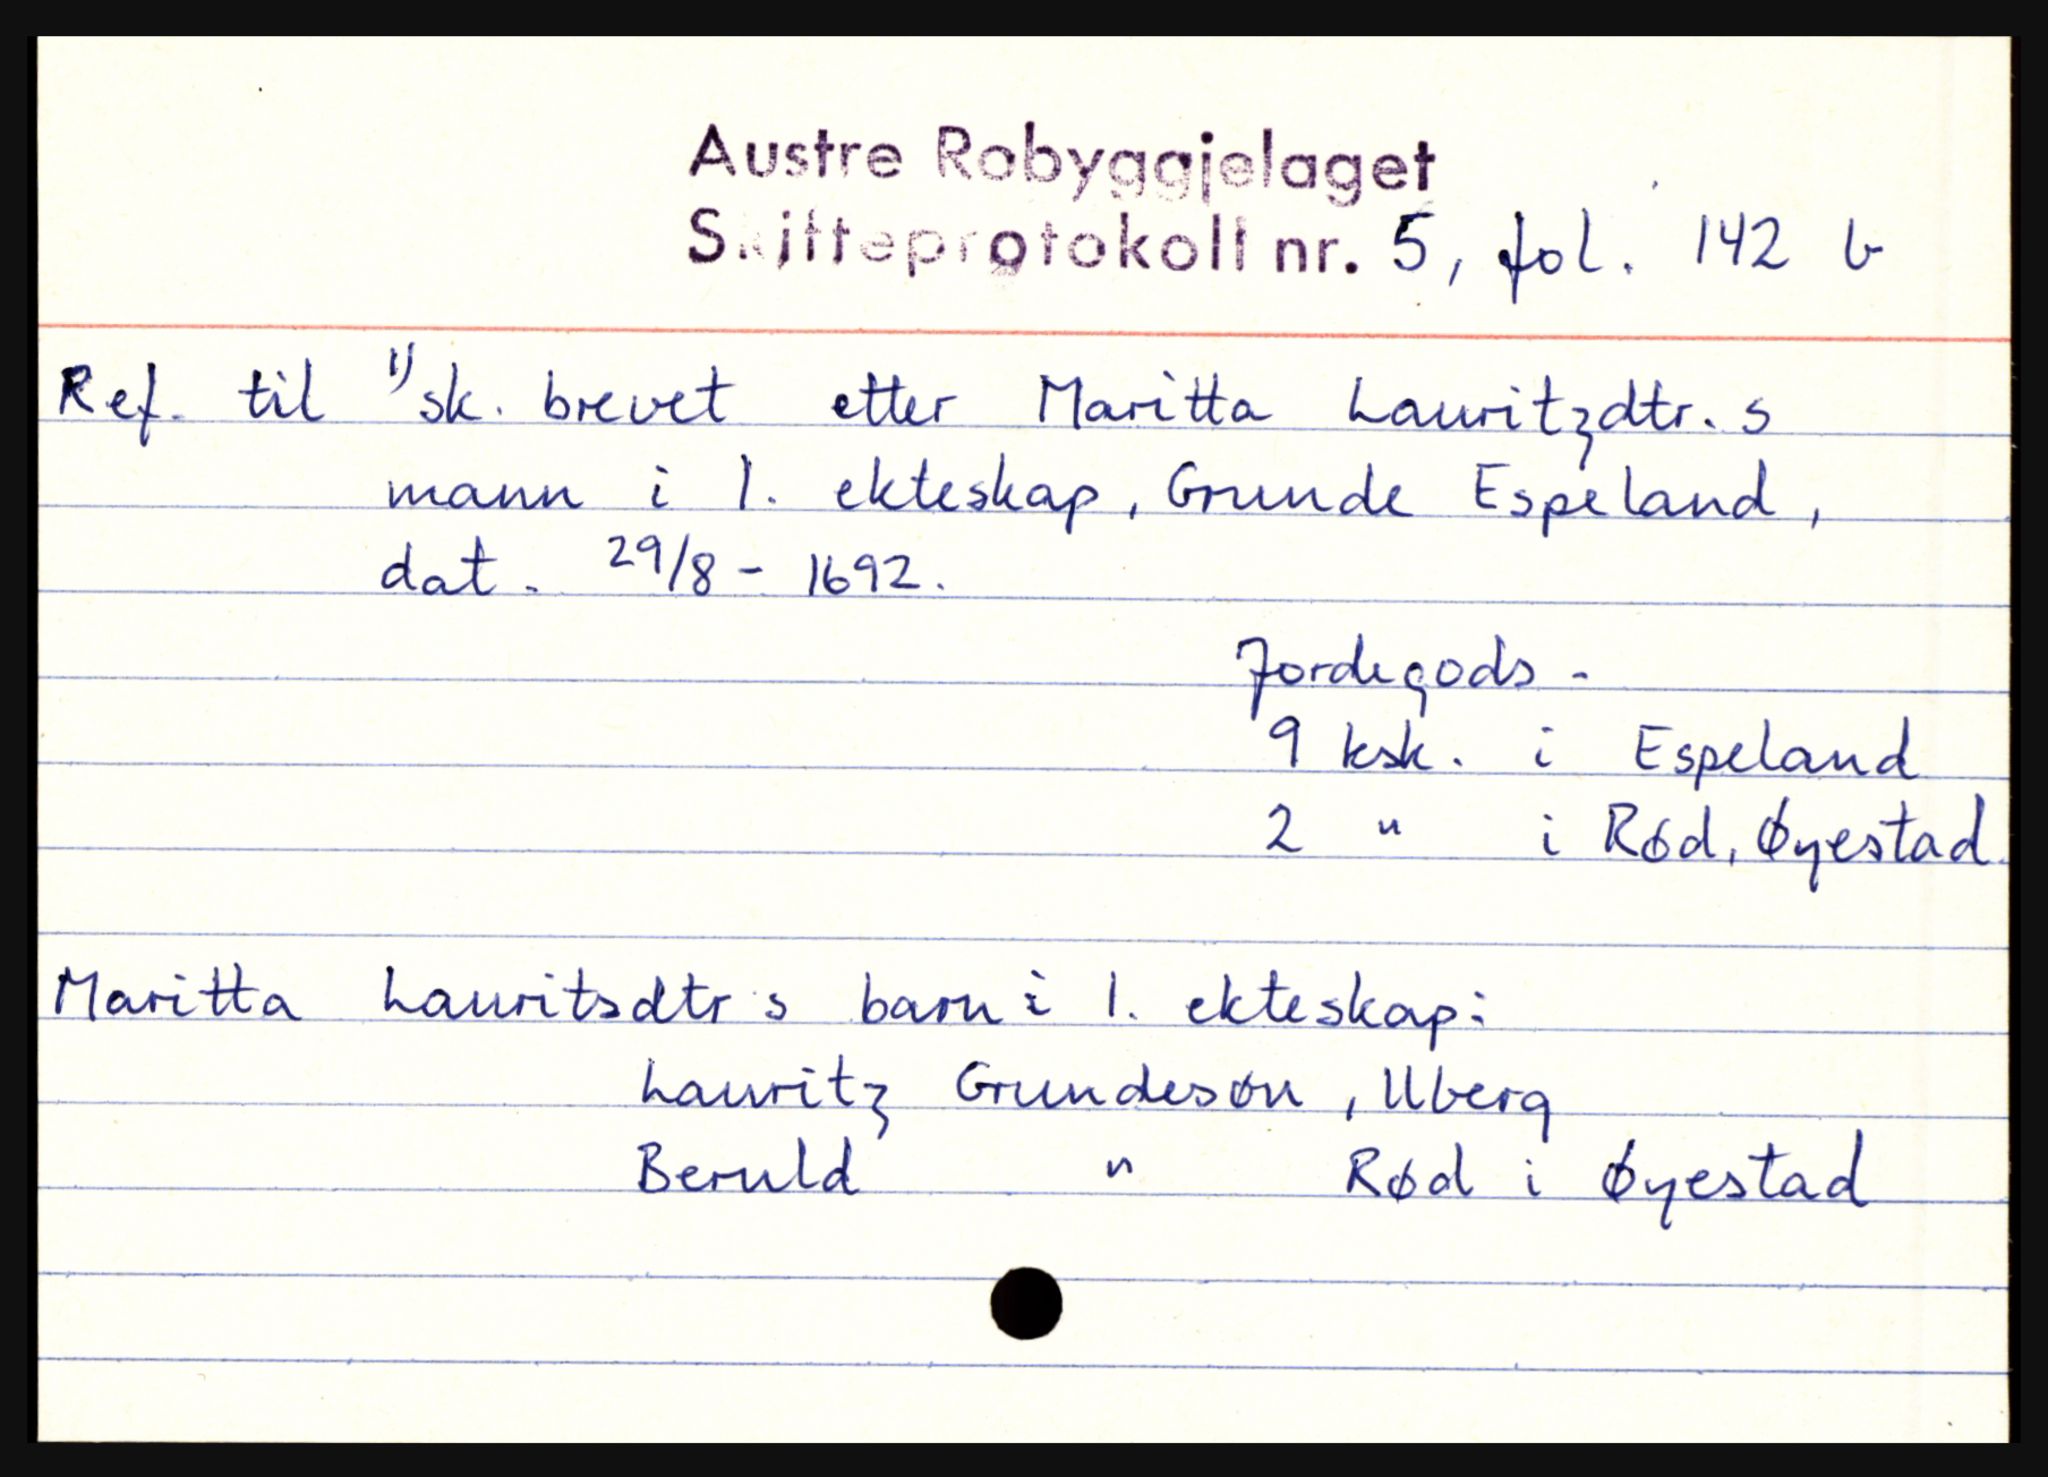 Austre Robyggjelaget
Skifteprotokoll nr. 5, fol. 142 b
Ref. til 1) sk. brevet etter Maritta Lauritzdtr. s
mann i 1. ekteskap, Grunde Espeland,
dat. 29/8 - 1692.
Jordegods -
9 ksk. i Espeland
2 " i Rød, Øyestad.
Maritta Lauritsdtr s barn i 1. ekteskap:
Lauritz Grundesøn, Uberg
Beruld " Rød i Øyestad